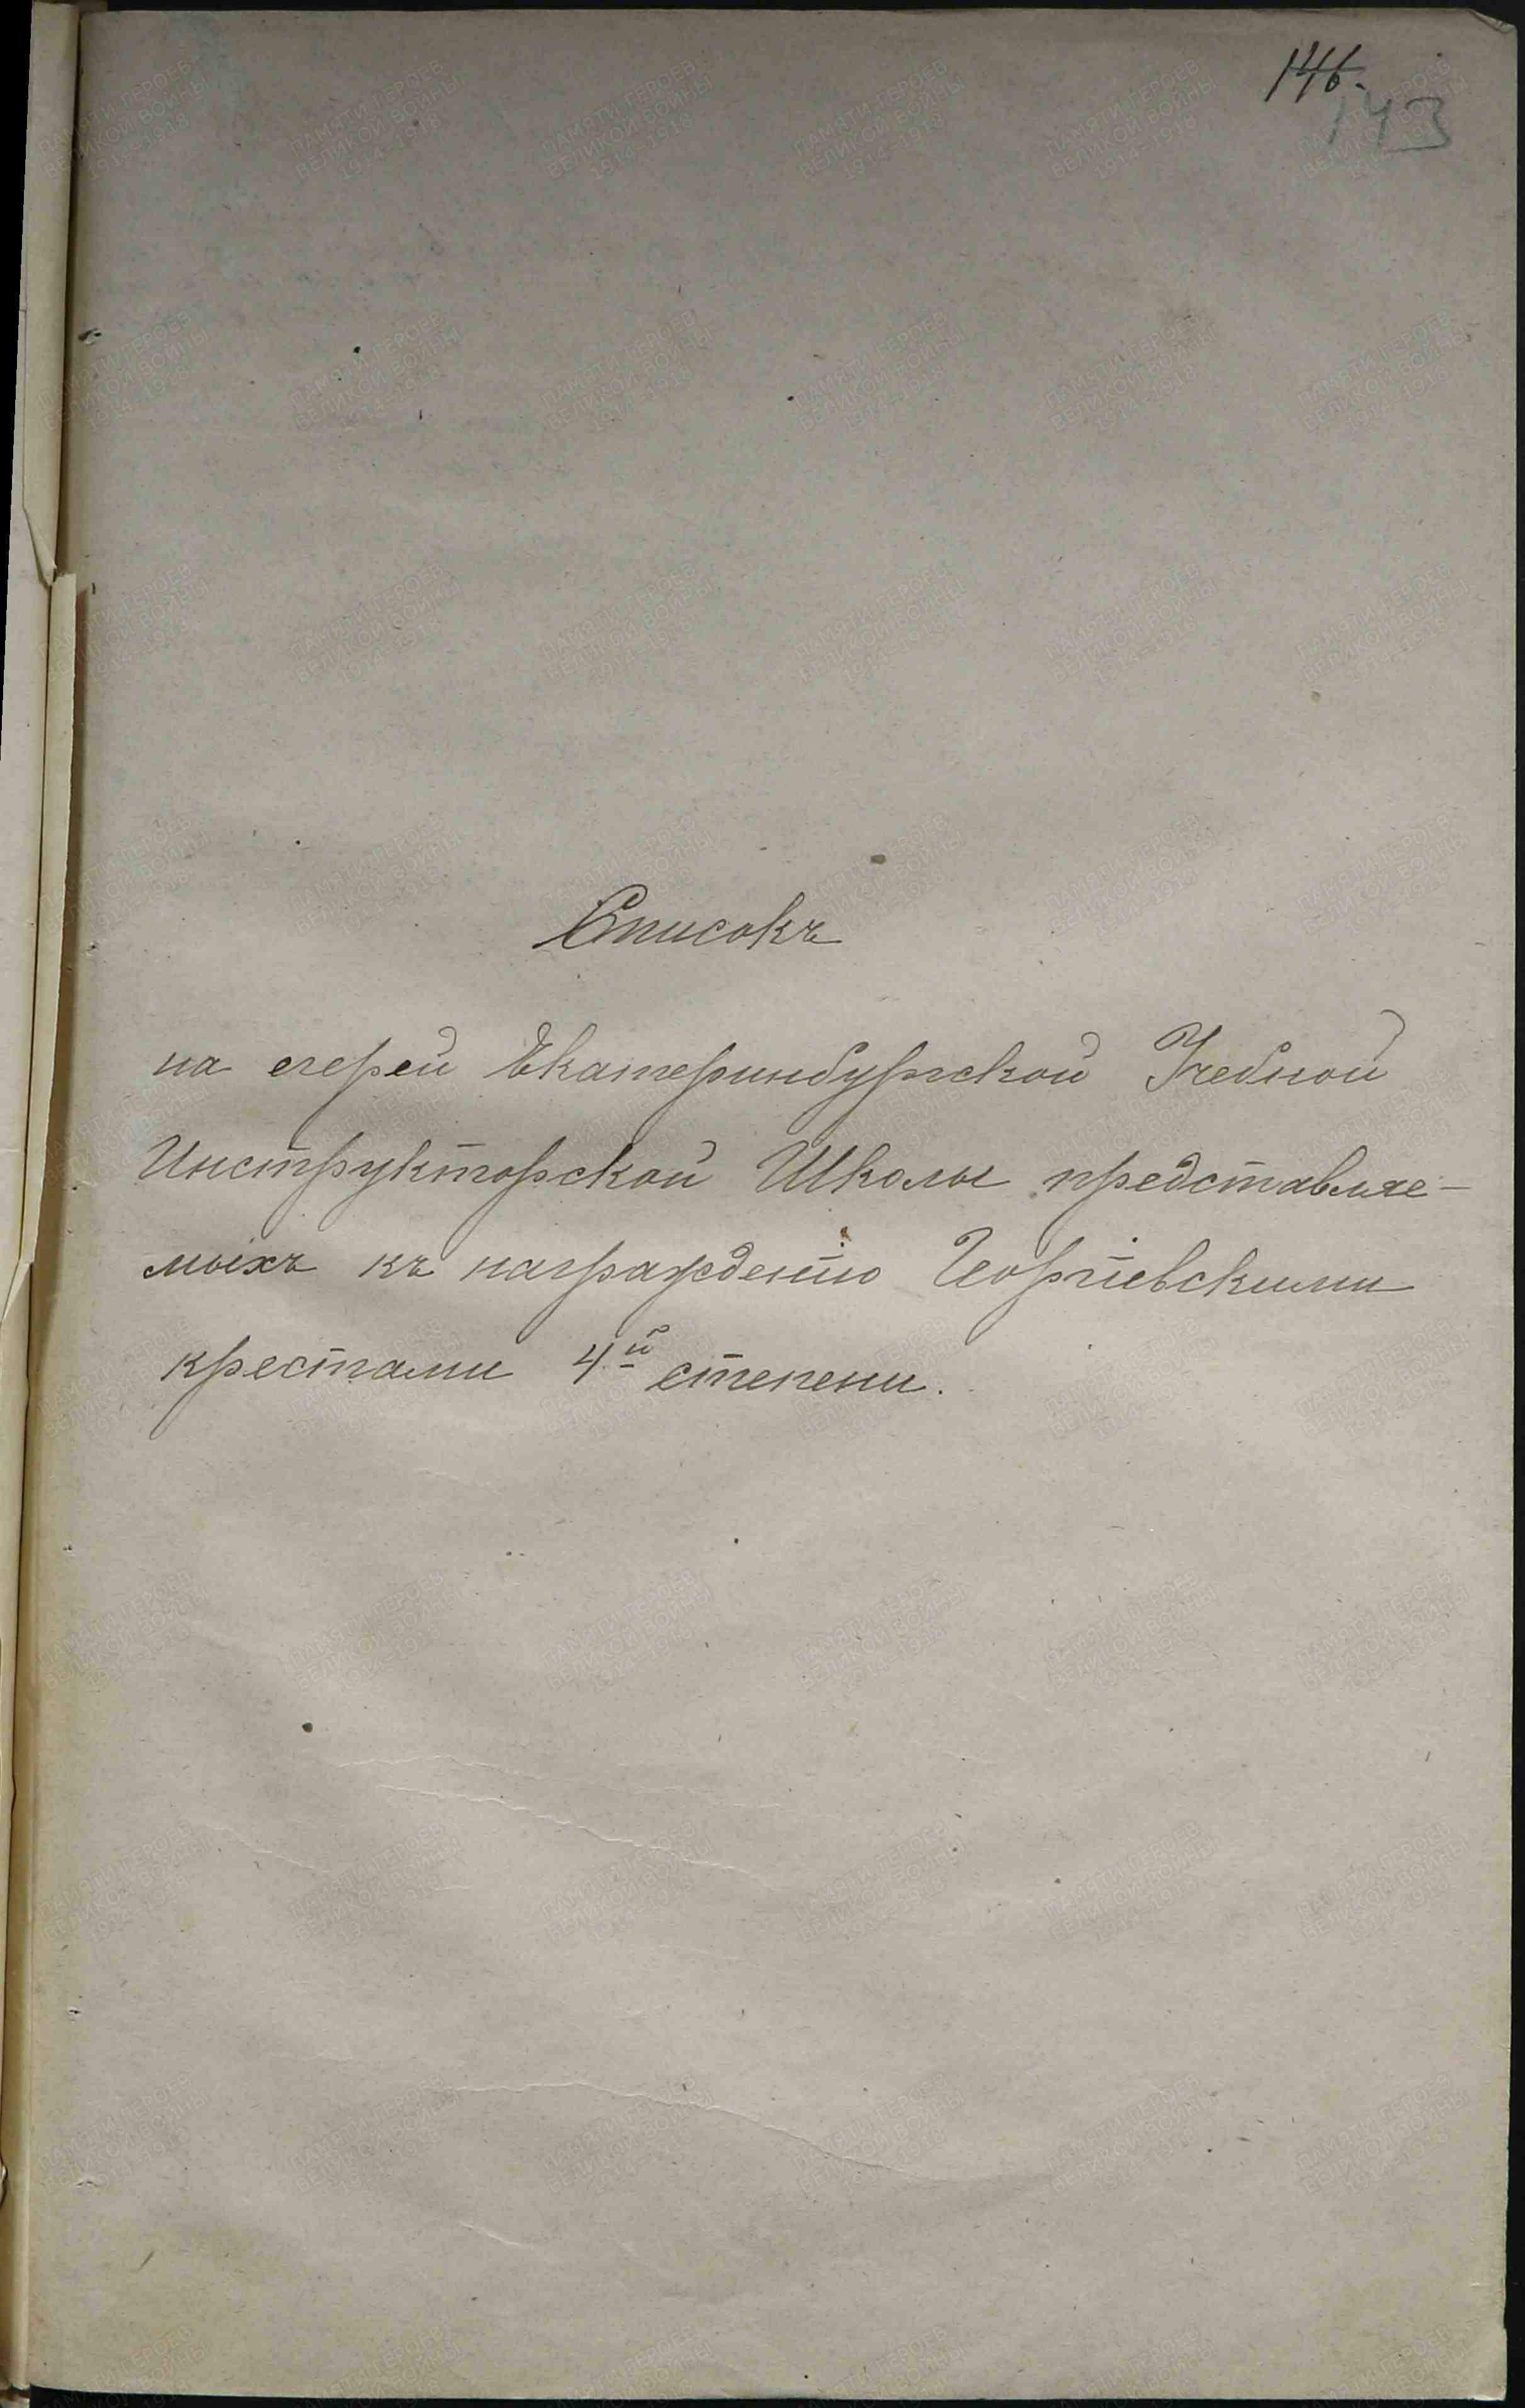 146.
143
Списокъ
на егерей Екатеринбургской Учебной
Инструкторской Школы представляе-
мыхъ къ награжденію Георгіевскими
крестами 4й степени.
ПАМЯТИ ГЕРОЕВ
ВЕЛИКОЙ ВОЙНЫ
1914-1918